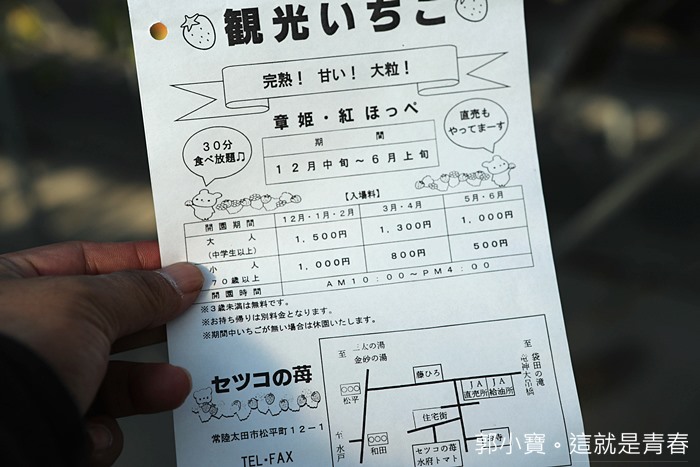 観光いちご
完熟！ 甘い！ 大粒！
章姫・紅ほっぺ
３０分
食べ放題♫
期 間
１２月中旬～６月上旬
直売も
やってまーす
【入場料】
開園期間 12月・1月・2月 3月・4月 5月・6月
大 人
(中学生以上) 1,500円 1,300円 1,000円
小 人
７０歳以上 1,000円 800円 500円
開園時間 AM10：00～PM4：00
※３歳未満は無料です。
※お持ち帰りは別料金となります。
※期間中いちごが無い場合は休園いたします。
セツコの苺
常陸太田市松平町１２－１
TEL・FAX
至 三太の湯
金砂の湯
至 袋田の滝
竜神大吊橋
藤ひろ
○○○
松平
JA
直売所
JA
給油所
住宅街
至 水戸
○○○
和田
セツコの苺
水府トマト
郭小寶。這就是青春